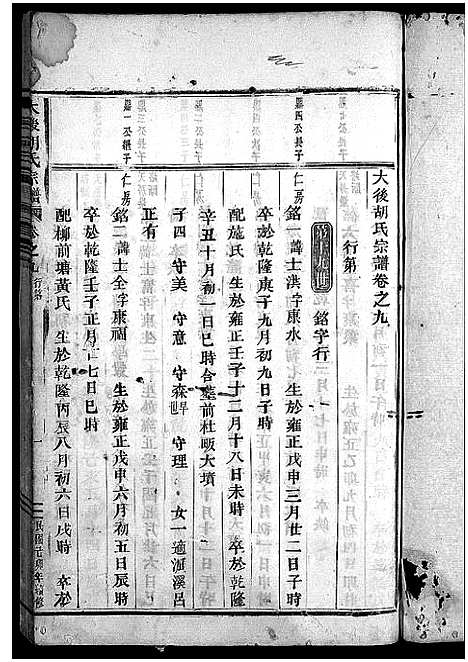 大後胡氏宗譜卷之九
行第
第十九世 銘字行
縣四公長子 仁房
銘一 諱士洪字東水 生於雍正戊申三月廿二日子時
卒於乾隆庚子九月初九日子時
配施氏 生於雍正壬子十二月十八日未時 卒於乾隆
辛丑十月初一日巳時合葬前杜畈大墳
子四 守美 守意 守森 守理 女一適 溪呂
正有
縣一公繼子 仁房
銘二 諱士全字東福 生於雍正戊申六月初五日辰時
卒於乾隆壬子正月十七日巳時
配柳前塘黃氏 生於乾隆丙辰八月初六日戌時 卒於
大後胡氏宗譜 卷之九 行第 一